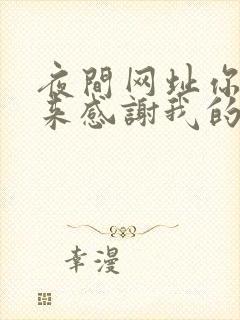 夜間网址你
来感謝我的
幸漫